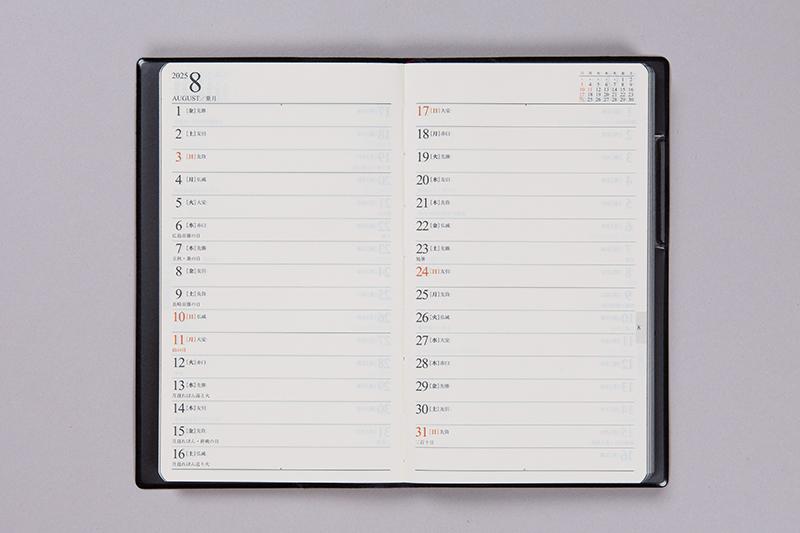 2025 8
AUGUST/葉月
1 [金]先勝
2 [土]友引
3 [日]先負
4 [月]仏滅
5 [火]大安
6 [水]赤口
広島原爆の日
7 [木]先勝
立秋・鼻の日
8 [金]友引
9 [土]先負
長崎原爆の日
10 [日]仏滅
11 [月]大安
山の日
12 [火]赤口
13 [水]先勝
月遅れぼん迎え火
14 [木]友引
15 [金]先負
月遅れぼん・終戦の日
16 [土]仏滅
月遅れぼん送り火
17 [日]大安
18 [月]赤口
19 [火]先勝
20 [水]友引
21 [木]先負
22 [金]仏滅
23 [土]先勝
処暑
24 [日]友引
25 [月]先負
26 [火]仏滅
27 [水]大安
28 [木]赤口
29 [金]先勝
30 [土]友引
31 [日]先負
二百十日
8